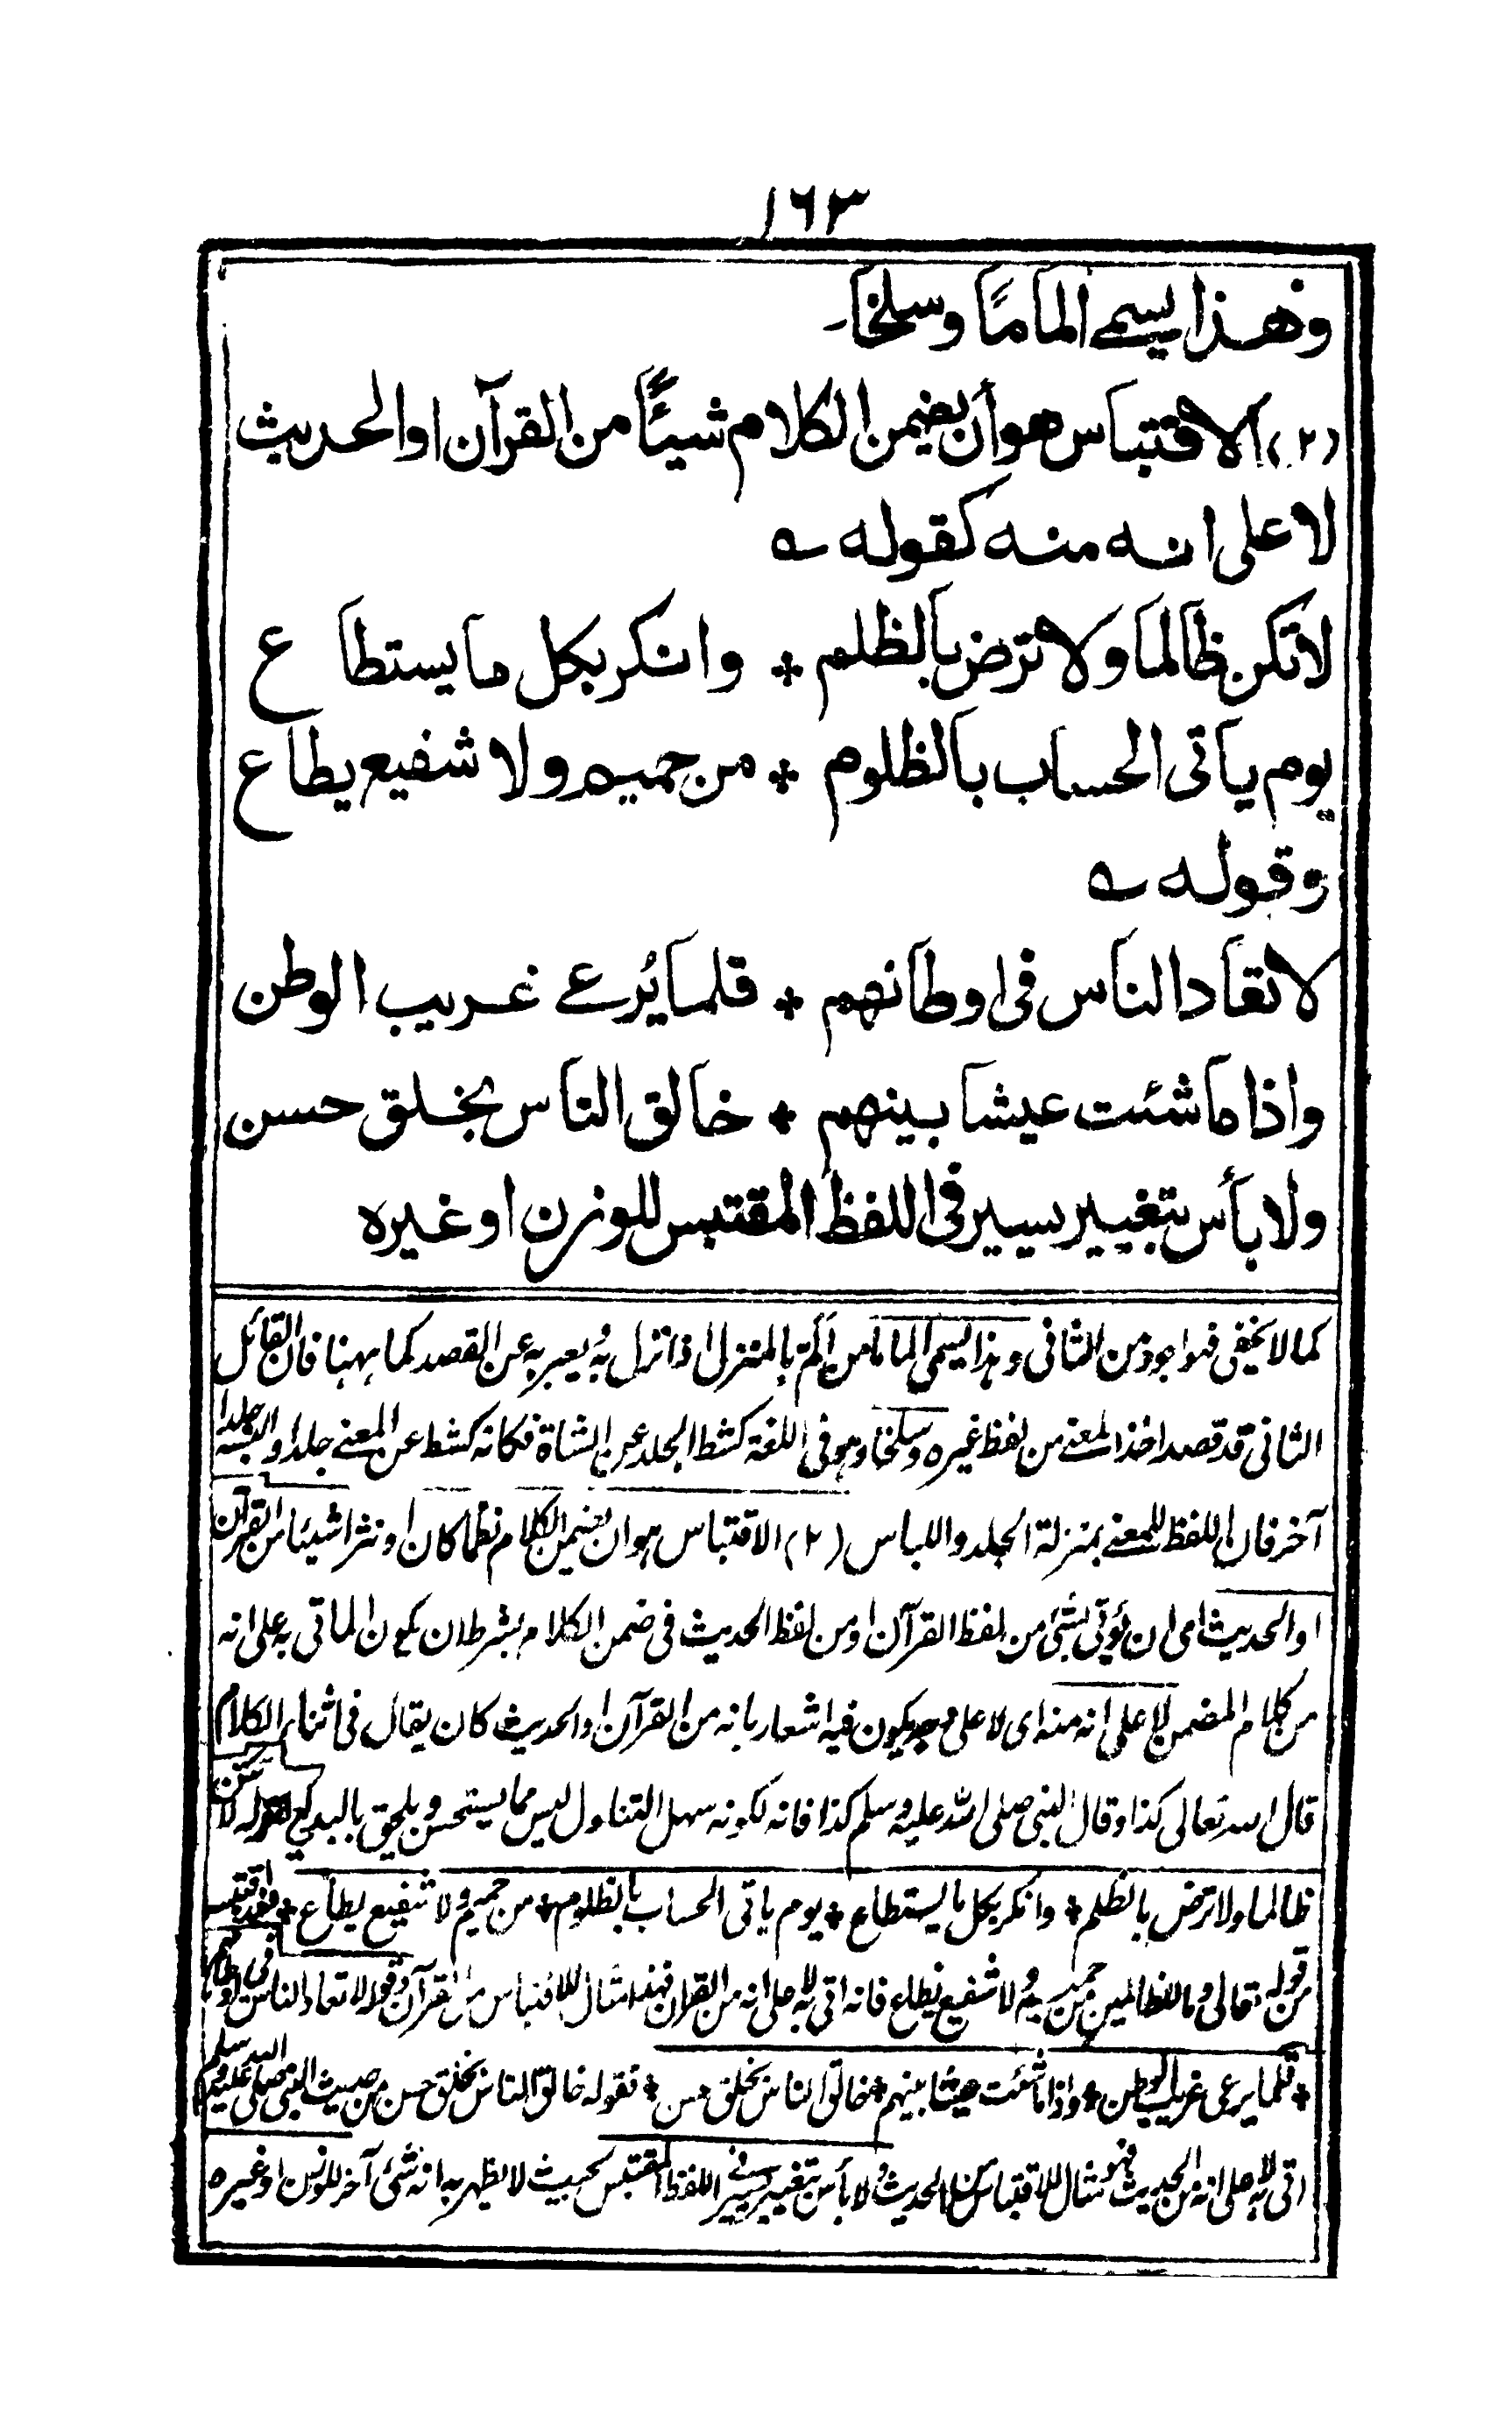 ١٦٣
وهذا يسمے الماماً وسلخاً۔
(٢) الاقتباس هو أن يضمن الكلام شيئاً من القرآن او الحديث
لا على انه منه كقوله ؎
لا تكن ظالما ولا ترض بالظلم * وانكر بكل ما يستطاع
يوم ياتى الحساب بالظلوم * من حميم ولا شفيع يطاع
وقوله ؎
لا تعاد الناس فى اوطانهم * قلما يُرعے غريب الوطن
واذا ما شئت عيشا بينهم * خالق الناس بخلق حسن
ولا بأس بتغيير يسير فى اللفظ المقتبس للوزن او غيره
كما لا يخفى فهو اجود من الثانى وهذا يسمى الماما من الم بالمنزل اذا نزل به يعبر به عن القصد كما ههنا فان القائل
الثانى قد قصد اخذ المعنے من لفظ غيره وسلخا وهو فى اللغة كشط الجلد عن الشاة فكانه كشط عن المعنے جلدا والبسه جلدا
آخر فان اللفظ للمعنے بمنزلة الجلد واللباس (٢) الاقتباس هو ان يضمن الكلام نظما كان او نثرا شيئا من القرآن
او الحديث اى ان يؤتى بشئ من لفظ القرآن او من لفظ الحديث فى ضمن الكلام بشرط ان يكون الماتى به على انه
من كلام المضمن لا على انه منه اى لا على وجه يكون فيه اشعار بانه من القرآن او الحديث كان يقال فى اثناء الكلام
قال الله تعالى كذا وقال النبى صلى الله عليه وسلم كذا فانه لكونه سهل التناول ليس مما يستحسن ويلحق بالبديع كقوله لا تكن
ظالما ولا ترض بالظلم * وانكر بكل ما يستطاع * يوم ياتى الحساب بالظلوم * من حميم ولا شفيع يطاع * فقد اقتبسه
من قوله تعالى وما للظالمين من حميم ولا شفيع يطاع فانه اتى به لا على انه من القرآن فهذا مثال للاقتباس من القرآن وقوله لا تعاد الناس فى اوطانهم
* قلما يرعى غريب الوطن * واذا ما شئت عيشا بينهم * خالق الناس بخلق حسن * فقوله خالق الناس بخلق حسن من حديث النبى صلى الله عليه وسلم
اتى به لا على انه من الحديث فهو مثال للاقتباس من الحديث ولا بأس بتغيير يسير فى اللفظ المقتبس بحيث لا يظهر به انه شئ آخر للوزن او غيره